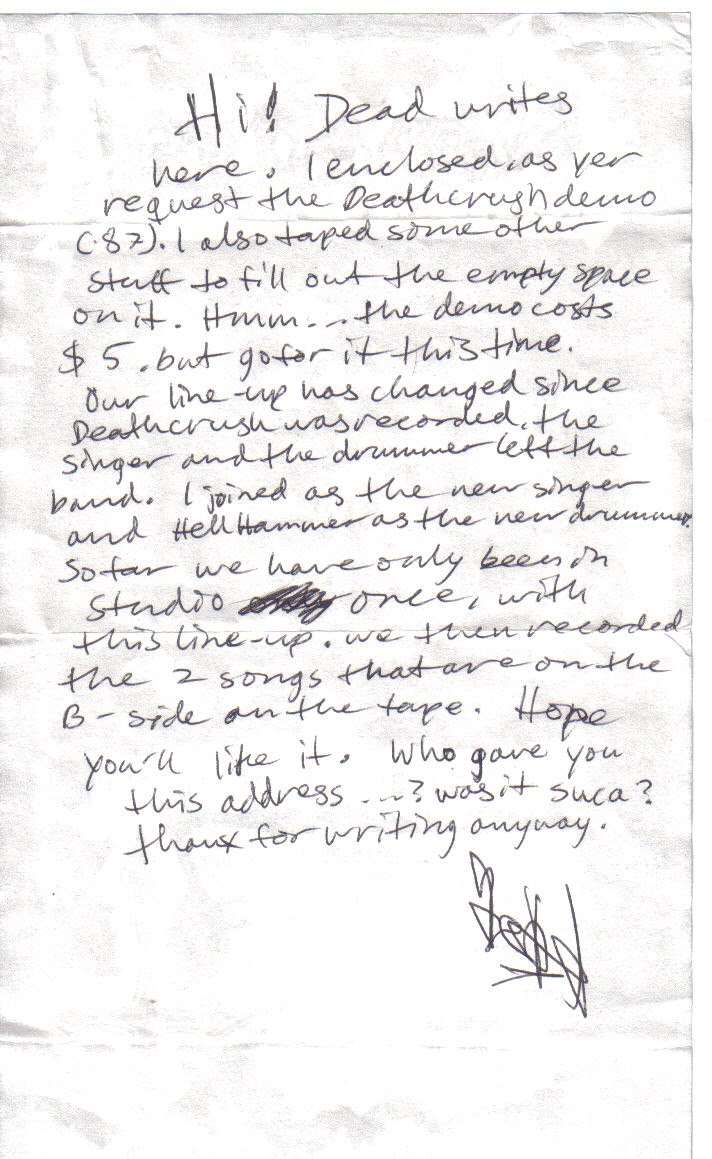 Hi! Dead writes
here. I enclosed, as per
request the Deathcrush demo
(-87). I also taped some other
stuff to fill out the empty space
on it. Hmm... the demo costs
$5. but go for it this time.
Our line-up has changed since
Deathcrush was recorded, the
singer and the drummer left the
band. I joined as the new singer
and HellHammer as the new drummer.
So far we have only been in
studio once, with
this line-up. we then recorded
the 2 songs that are on the
B-side on the tape. Hope
you'll like it. Who gave you
this address ...? was it Suca?
thanx for writing anyway.
Dead